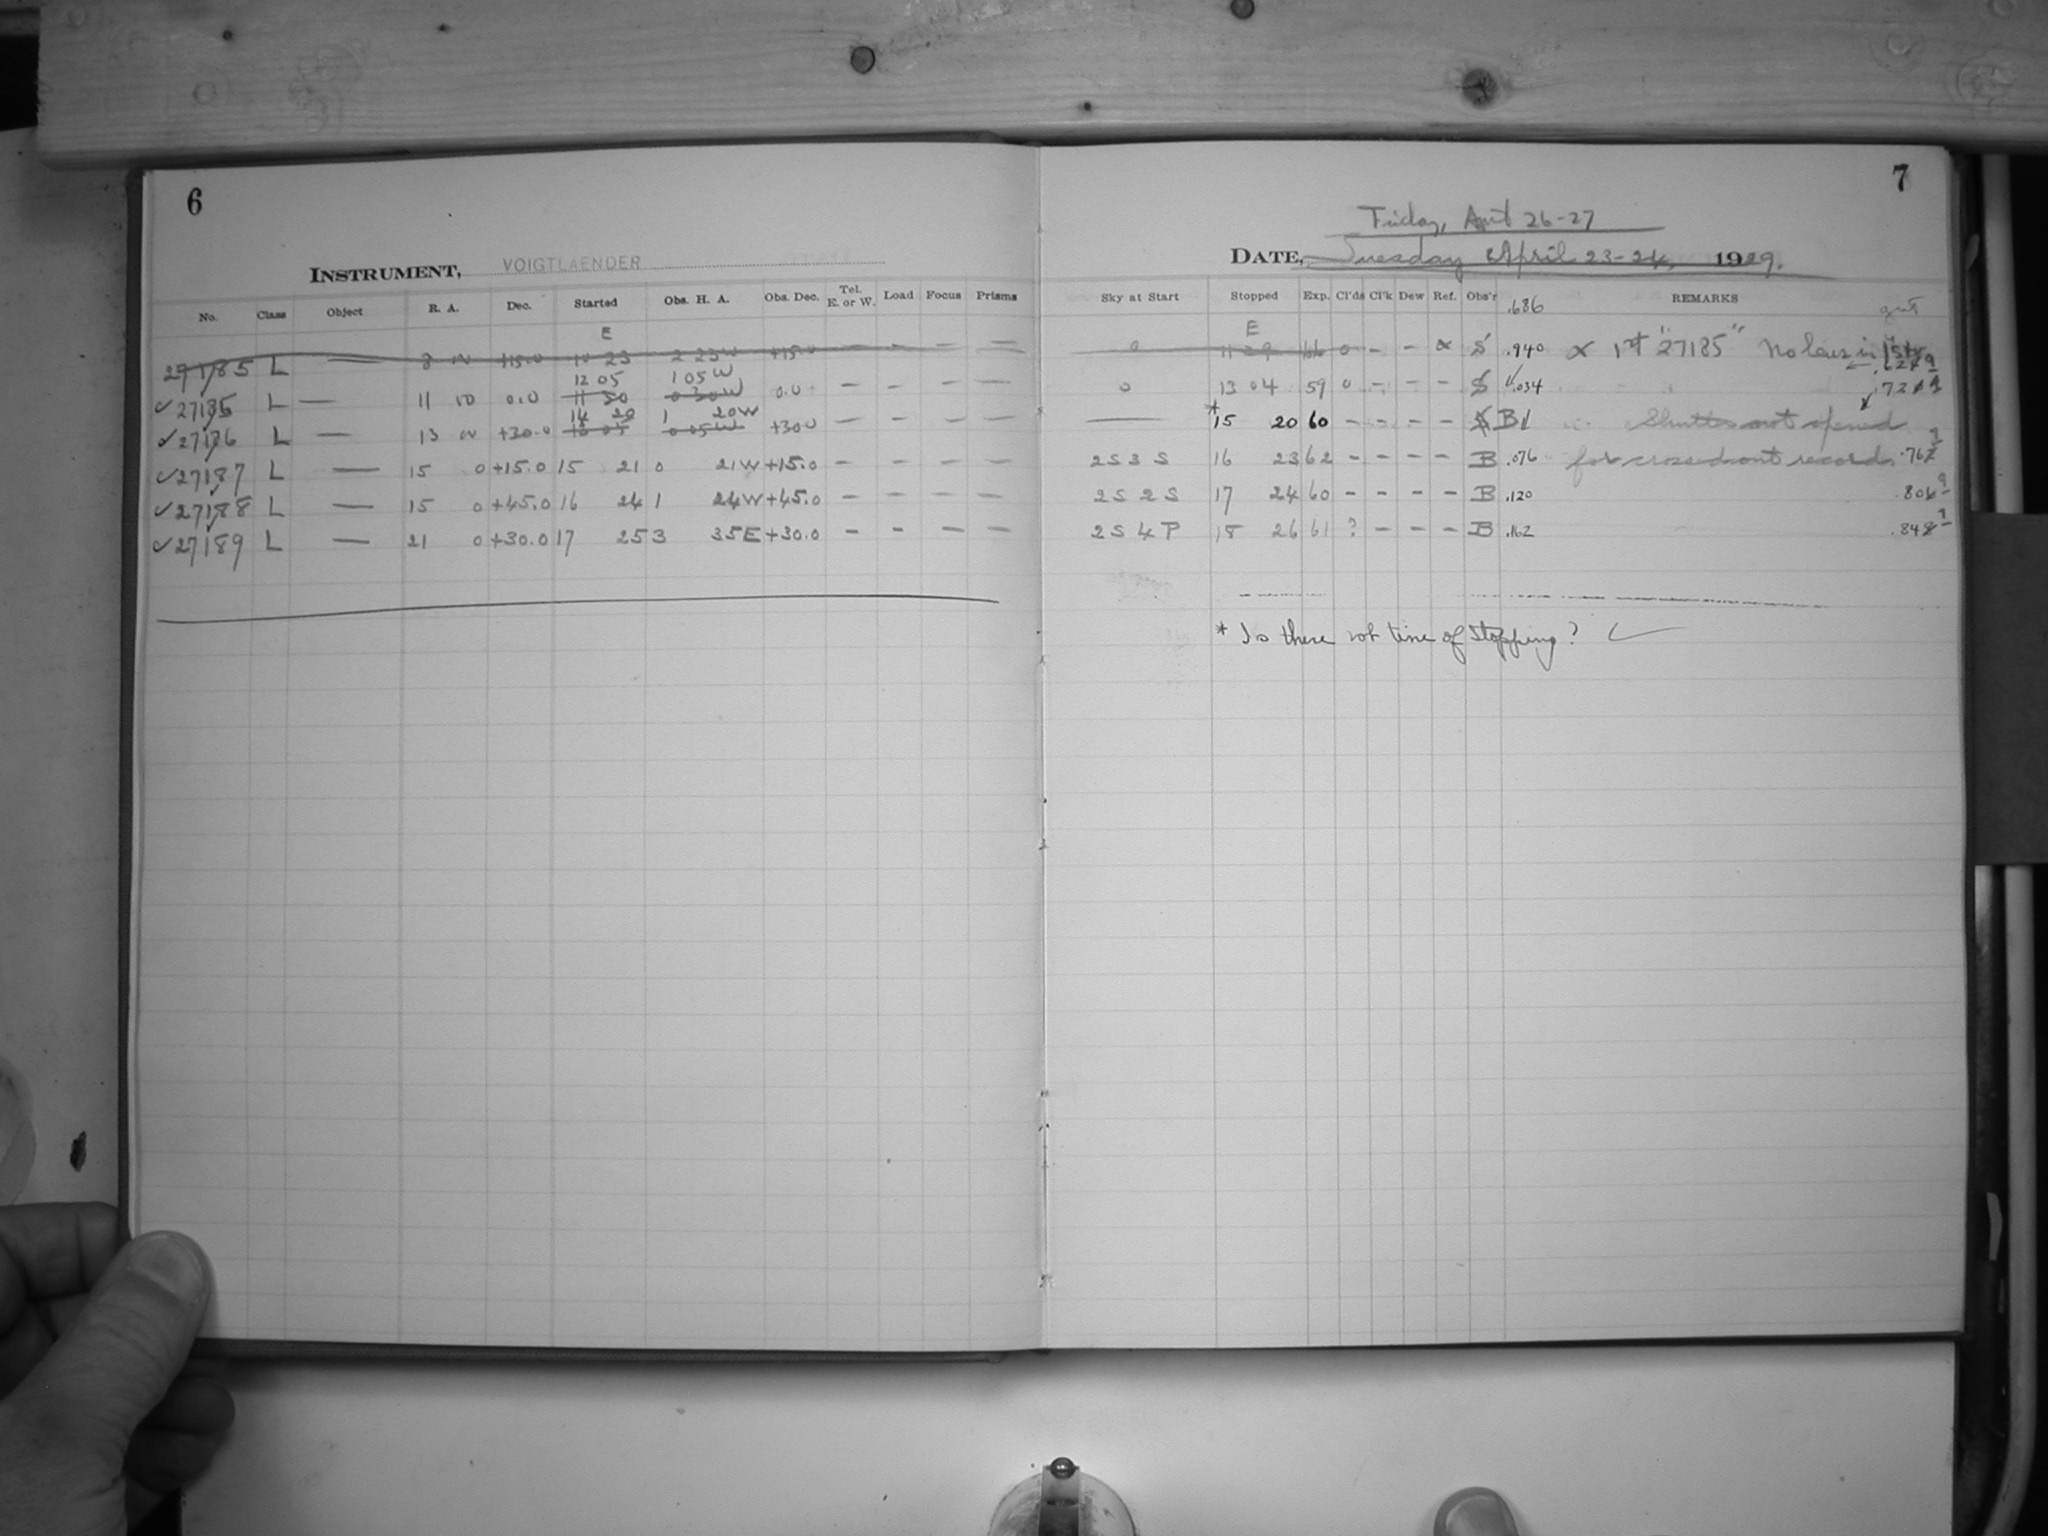 6
7
Friday, April 26-27
INSTRUMENT, VOIGTLAENDER
DATE, Tuesday April 23-24, 1929.
No. Class Object R. A. Dec. Started Obs. H. A. Obs. Dec. Tel. E. or W. Load Focus Prisms
Sky at Start Stopped Exp. Cl'ds Cl'k Dew Ref. Obs'r .686 REMARKS gmt
E E
27185 L — 8 +15.0 10 23 2 23W +15.0 — — — — 0 11 29 66 0 - - x S .940 x 1st "27185" No lens in
12 05 1 05W
27185 L — 11 10 0.0 11 30 0 30W 0.0 — — — — 0 13 04 59 0 - - - S .034
14 20 1 20W
27186 L — 13 +30.0 13 05 0 05W +30.0 — — — — — *15 20 60 - - - - S B Shutter not opened
27187 L — 15 0 +15.0 15 21 0 21W +15.0 — — — — 2S 3 S 16 23 62 - - - - B .076 for crossed out record
27188 L — 15 0 +45.0 16 24 1 24W +45.0 — — — — 2S 2S 17 24 60 - - - - B .120
27189 L — 21 0 +30.0 17 25 3 35E +30.0 — — — — 2S 4 P 18 26 61 ? - - - B .162
* Is there not time of stopping?